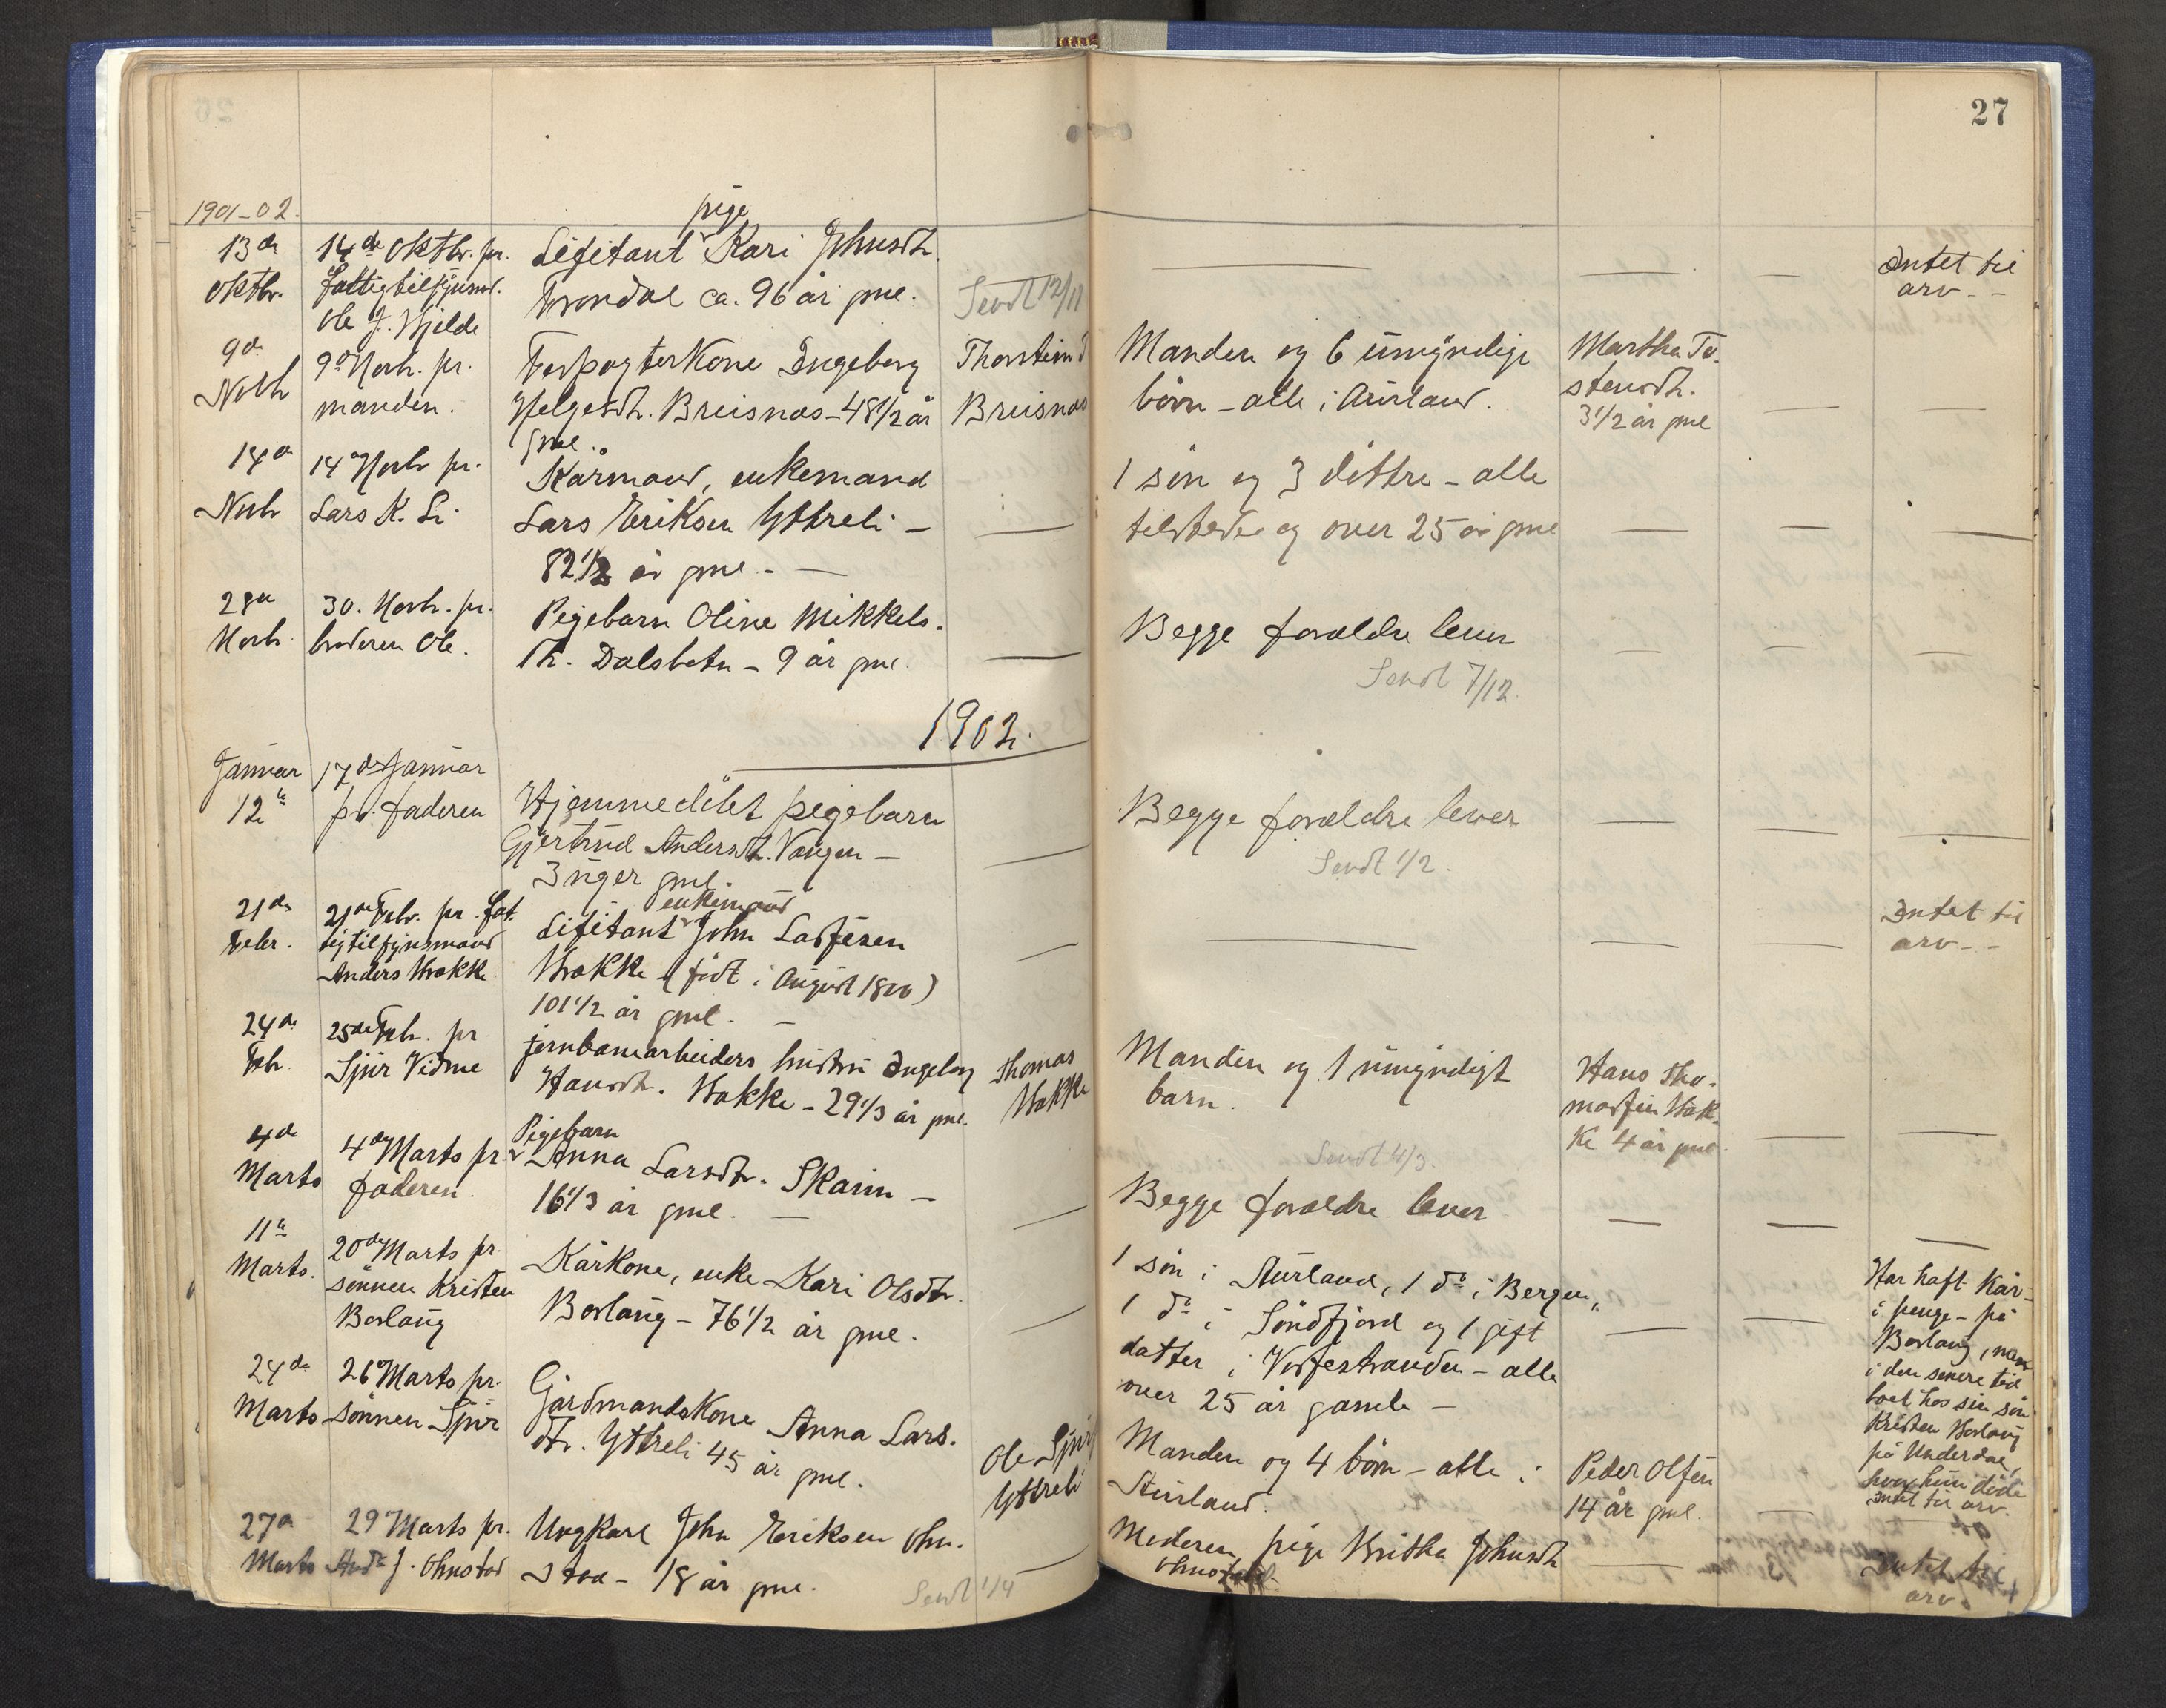 27
1901-02.
13de
Oktbr.
14de Oktbr. pr.
fattigtilsynsm.
Ole J. Hjelde
pige
Lifitant Kari Johnsdtr.
Frondal ca. 96 år gml.
Sendt 12/11
Intet til
arv. -
9de
Novbr
9de Novbr. pr.
manden.
Forpagterkone Ingeborg
Helgesdtr. Breisnæs - 48 1/2 år
gml.
Thorstein
Breisnæs
Manden og 6 umyndige
børn - alle i Aurland.
Martha To-
stensdtr.
3 1/2 år gml
14de
Novbr
14de Novbr pr.
Lars K. Li
Kårmand, enkemand
Lars Eriksen Yttreli -
82 1/2 år gml. -
1 søn og 3 døttre - alle
tilstede og over 25 år gml
28de
Novbr.
30. Novbr. pr.
broderen Ole.
Pigebarn Oline Mikkels-
dtr. Dalsbotn - 9 år gml
Begge forældre lever
Sendt 7/12.
1902.
Januar
12te
17de Januar
pr. faderen
Hjemmedøbt pigebarn
Gjertrud Andersdtr. Vangen -
3 uger gml.
Begge forældre lever
Sendt 1/2.
21de
Febr.
21de Febr. pr. fat-
tigtilsynsmand
Anders Stokke
enkemand
Lifitant John Lassesen
Stokke - (født i August 1800)
101 1/2 år gml. -
Intet til
arv. -
24de
Feb.
25de Feb. pr
Sjur Vidme
jernbanearbeiders hustru Ingeborg
Hansdtr. Stokke - 29 1/3 år gml.
Thomas
Stokke
Manden og 1 umyndigt
barn.
Hans Tho-
massen Stok-
ke 4 år gml
Sendt 4/3.
4de
Marts
4de Marts pr.
faderen.
Pigebarn
Anna Larsdtr. Skaim -
16 1/3 år gml. -
Begge forældre lever
11te
Marts.
20de Marts pr.
sønnen Kristen
Berlaug
Kårkone, enke Kari Olsdtr.
Berlaug - 76 1/2 år gml.
1 søn i Aurland, 1 do i Bergen,
1 do i Søndfjord og 1 gift
datter i Vossestranden - alle
over 25 år gamle -
Har haft kår -
i penge - på
Berlaug, men
i den senere tid
boet hos sin søn
Kristen Berlaug
på Underdal,
hvor hun døde
Intet til arv.
24de
Marts
26de Marts pr.
sønnen Sjur
Gårdmandskone Anna Lars-
dtr. Yttreli 45 år gml.
Ole Sjurs
Yttreli
Manden og 4 børn - alle i
Aurland.
Peder Olsen
14 år gml.
27de
Marts
29 Marts pr.
Ands J. Ohnstad
Ungkarl John Eriksen Ohn-
stad - 18 år gml.
Sendt 1/4
Moderen, pige Britha Johnsdtr
Ohnstad
Intet til
arv.